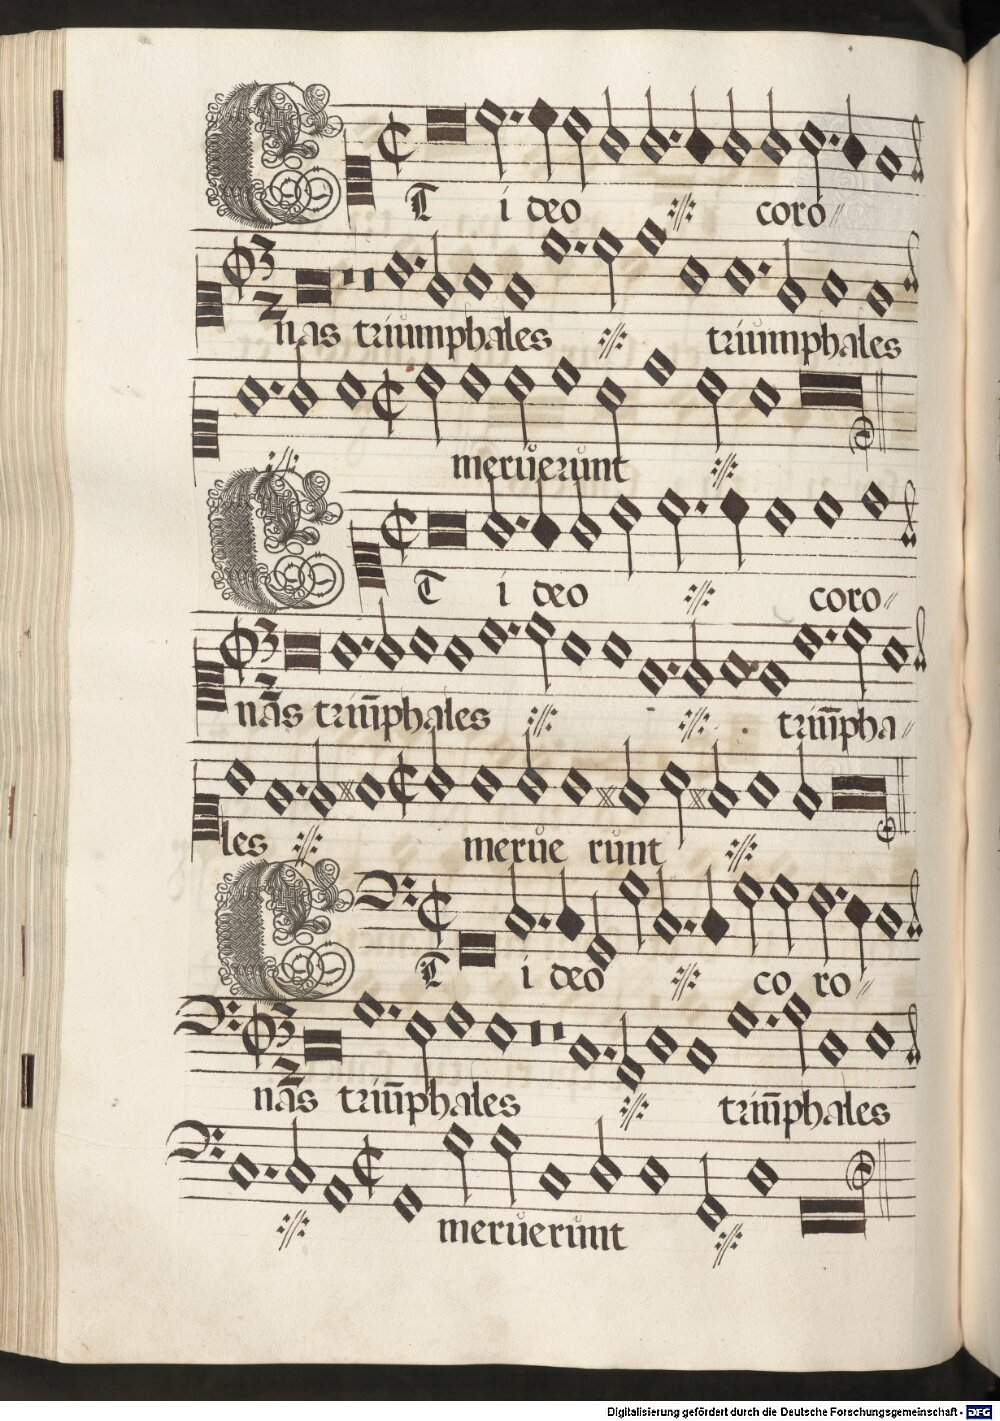 ET ideo coro
nas triumphales triumphales
meruerunt
ET ideo coro
nas triūphales triūpha
les merue runt
ET ideo co ro
nas triūphales triūphales
meruerunt
Digitalisierung gefördert durch die Deutsche Forschungsgemeinschaft - DFG